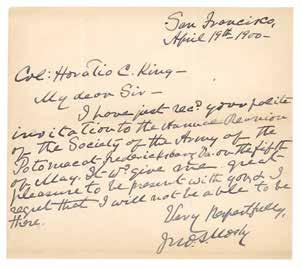 San Francisco,
April 19th 1900-
Col: Horatio C. King-
My dear Sir-
I have just recd your polite
invitation to the Annual Reunion
of the Society of the Army of the
Potomac at Fredericksburg Va. on the fifth
of May. It wd give me great
pleasure to be present with you & I
regret that I will not be able to be
there.
Very Respectfully,
Jno. S. Mosby